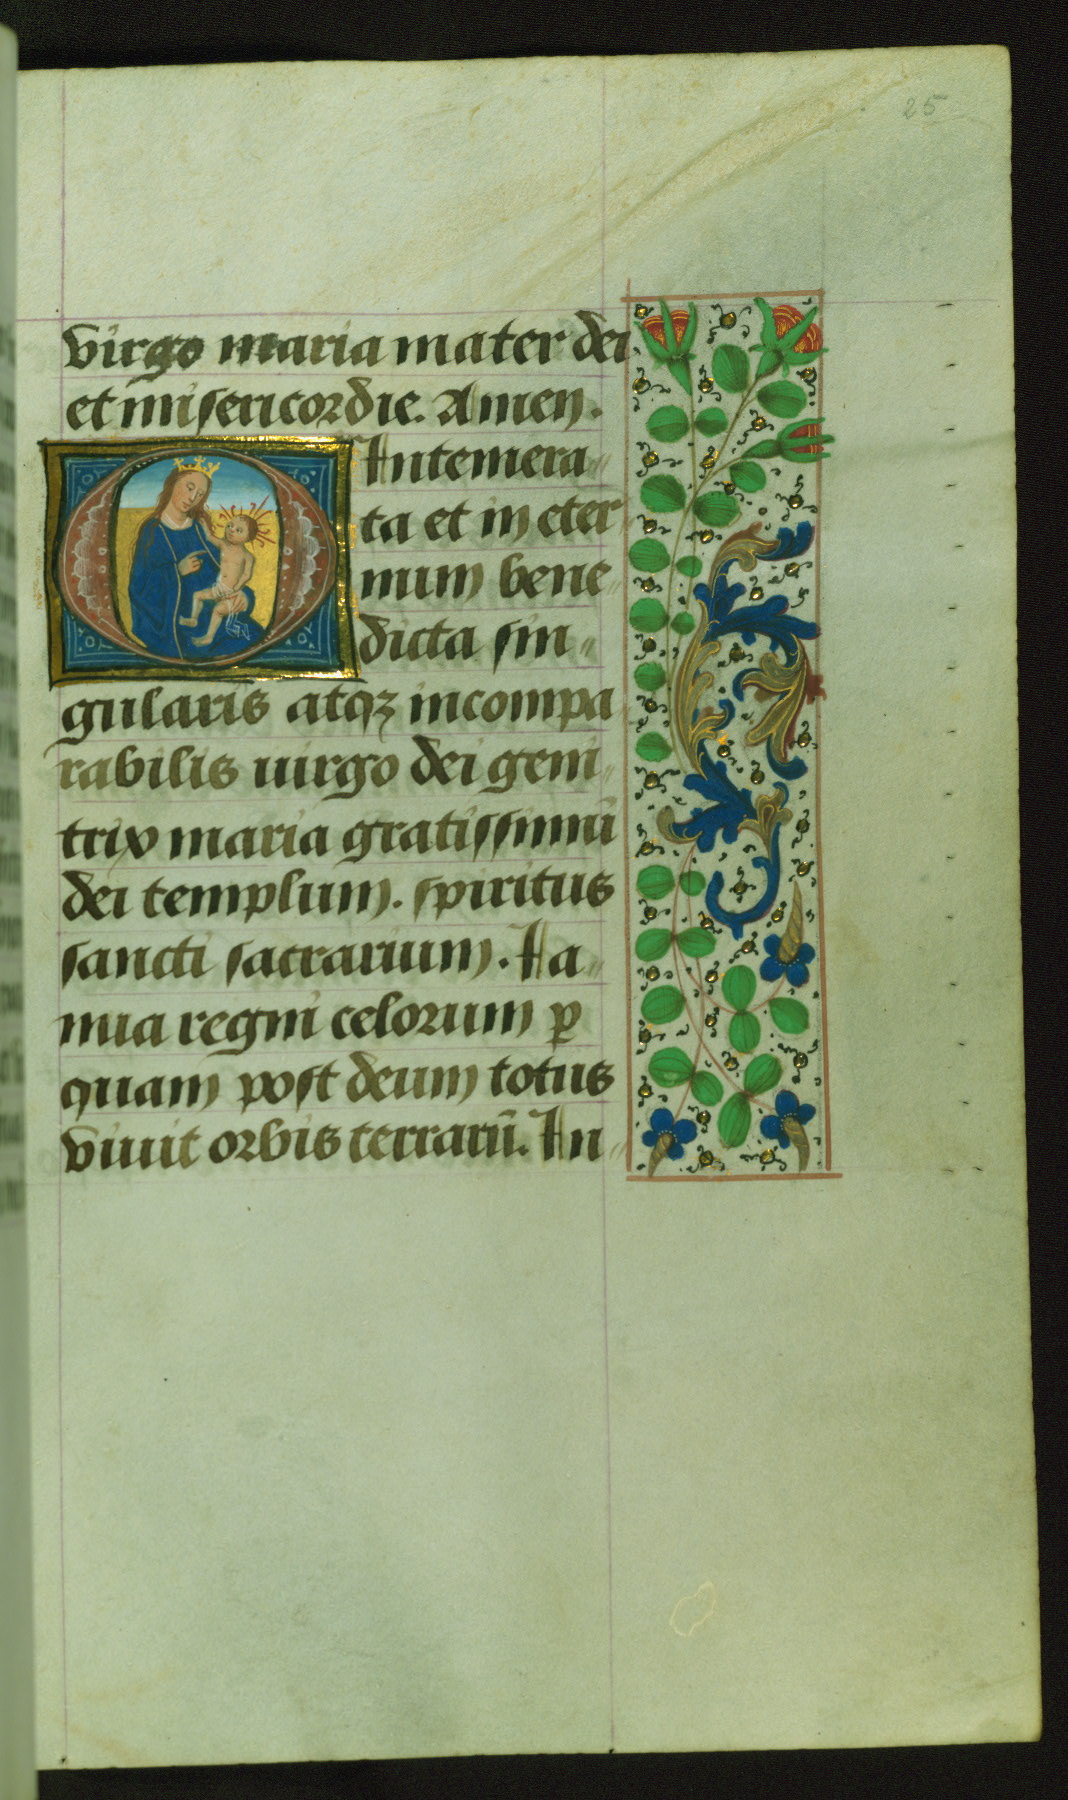 25
virgo maria mater dei
et misericordie. Amen.
O Intemera
ta et in eter
num bene
dicta sin
gularis atqꝫ incompa
rabilis uirgo dei geni
trix maria gratissimū
dei templum. spiritus
sancti sacrarium. Ia
nua regni celorum ꝑ
quam post deum totus
viuit orbis terrarū. In